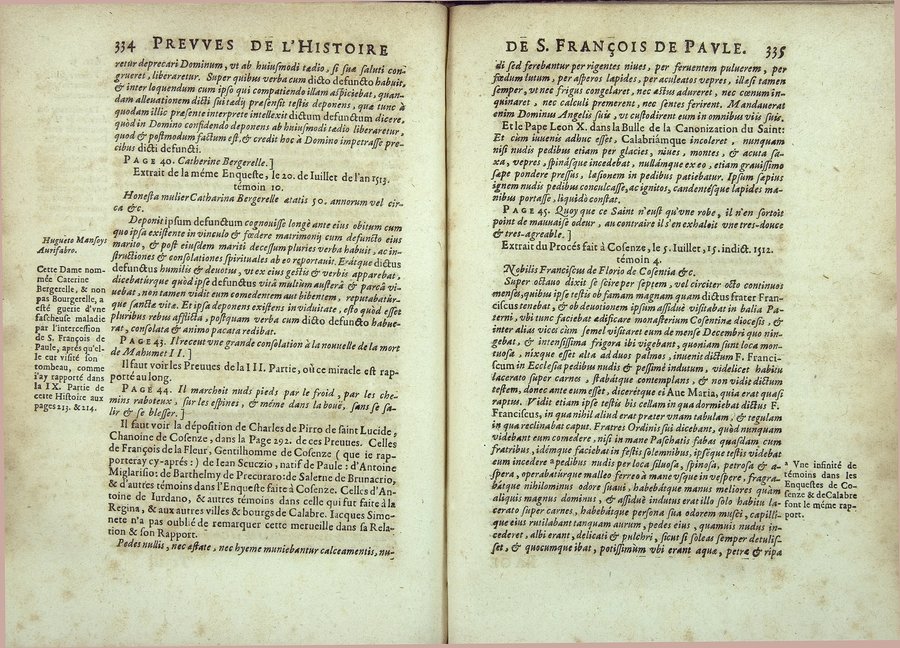 334 PREVVES DE L'HISTOIRE
retur deprecari Dominum, vt ab huiusmodi tædio, si suæ saluti con-
grueret, liberaretur. Super quibus verba cum dicto defuncto habuit,
& inter loquendum cum ipso qui compatiendo illam aspiciebat, quan-
dam alleuationem dicti sui tædij præsensit testis deponens, quæ tunc à
quodam illic præsente interprete intellexit dictum defunctum dicere,
quòd in Domino confidendo deponens ab huiusmodi tædio liberaretur,
quod & postmodum factum est, & credit hoc à Domino impetrasse pre-
cibus dicti defuncti.
PAGE 40. Catherine Bergerelle.]
Extrait de la méme Enqueste, le 20. de Iuillet de l'an 1513.
témoin 10.
Honesta mulier Catharina Bergerelle ætatis 50. annorum vel cir-
ca &c.
Deponit ipsum defunctum cognouisse longè ante eius obitum cum
quo ipsa existente in vinculo & fœdere matrimonij cum defuncto eius
marito, & post eiusdem mariti decessum pluries verba habuit, ac in-
structiones & consolationes spirituales ab eo reportauit. Erátque dictus
defunctus humilis & deuotus, vt ex eius gestis & verbis apparebat,
dicebatúrque quòd ipse defunctus vitâ multùm austerâ & parcâ vi-
uebat, non tamen vidit eum comedentem aut bibentem, reputabatúr-
que sanctæ vitæ. Et ipsa deponens existens in viduitate, esto quòd esset
pluribus rebus afflicta, postquam verba cum dicto defuncto habue-
rat, consolata & animo pacata redibat.
PAGE 43. Il receut vne grande consolation à la nouuelle de la mort
de Mahumet II.]
Il faut voir les Preuues de la III. Partie, où ce miracle est rap-
porté au long.
PAGE 44. Il marchoit nuds pieds par le froid, par les che-
mins raboteux, sur les espines, & méme dans la bouë, sans se sa-
lir & se blesser.]
Il faut voir la déposition de Charles de Pirro de saint Lucide,
Chanoine de Cosenze, dans la Page 292. de ces Preuues. Celles
de François de la Fleur, Gentilhomme de Cosenze (que ie rap-
porteray cy-aprés:) de Iean Scuczio, natif de Paule: d'Antoine
Miglarisio: de Barthelmy de Precuraro: de Salerne de Brunacrio,
& d'autres témoins dans l'Enqueste faite à Cosenze. Celles d'An-
toine de Iurdano, & autres témoins dans celle qui fut faite à la
Regina, & aux autres villes & bourgs de Calabre. Iacques Sime-
nete n'a pas oublié de remarquer cette merueille dans sa Rela-
tion & son Rapport.
Pedes nullis, nec æstate, nec hyeme muniebantur calceamentis, nu-
Hugueto Mansoys
Aurifabro.
Cette Dame nom-
mée Caterine
Bergerelle, & non
pas Bourgerelle, a
esté guerie d'vne
fascheuse maladie
par l'intercession
de S. François de
Paule, aprés qu'el-
le eut visité son
tombeau, comme
i'ay rapporté dans
la IX. Partie de
cette Histoire aux
pages 213. & 214.
DE S. FRANÇOIS DE PAVLE. 335
di sed ferebantur per rigentes niues, per feruentem puluerem, per
fœdum lutum, per asperos lapides, per aculeatos vepres, illæsi tamen
semper, vt nec frigus congelaret, nec æstus adureret, nec cœnum in-
quinaret, nec calculi premerent, nec sentes ferirent. Mandauerat
enim Dominus Angelis suis, vt custodirent eum in omnibus viis suis.
Et le Pape Leon X. dans la Bulle de la Canonization du Saint:
Et cùm iuuenis adhuc esset, Calabriámque incoleret, nunquam
nisi nudis pedibus etiam per glacies, niues, montes, & acuta sa-
xa, vepres, spinásque incedebat, nullámque ex eo, etiam grauissimo
sæpe pondere pressus, læsionem in pedibus patiebatur. Ipsum sæpius
ignem nudis pedibus conculcasse, ac ignitos, candentésque lapides ma-
nibus portasse, liquido constat.
PAGE 45. Quoy que ce Saint n'eust qu'vne robe, il n'en sortoit
point de mauuaise odeur, au contraire il s'en exhaloit vne tres-douce
& tres-agreable.]
Extrait du Procés fait à Cosenze, le 5. Iuillet, 15. indict. 1512.
témoin 4.
Nobilis Franciscus de Florio de Cosentia &c.
Super octauo dixit se scire per septem, vel circiter octo continuos
menses, quibus ipse testis ob famam magnam quam dictus frater Fran-
ciscus tenebat, & ob deuotionem ipsum assiduè visitabat in balia Pa-
terni, vbi tunc faciebat ædificare monasterium Cosentinæ diœcesis, &
inter alias vices cùm semel visitaret eum de mense Decembri quo nin-
gebat, & intensissima frigora ibi vigebant, quoniam sunt loca mon-
tuosa, nixque esset alta ad duos palmos, inuenit dictum F. Franci-
scum in Ecclesia pedibus nudis & pessimè indutum, videlicet habitu
lacerato super carnes, stabátque contemplans, & non vidit dictum
testem, donec ante eum esset, dicerétque ei Aue Maria, quia erat quasi
raptus. Vidit etiam ipse testis bis cellam in qua dormiebat dictus F.
Franciscus, in qua nihil aliud erat præter vnam tabulam, & tegulam
in qua reclinabat caput. Fratres Ordinis sui dicebant, quòd nunquam
videbant eum comedere, nisi in mane Paschatis fabas quasdam cum
fratribus, idémque faciebat in festis solemnibus, ipséque testis videbat
eum incedere ᵃ pedibus nudis per loca siluosa, spinosa, petrosa & a-
spera, operabatúrque malleo ferreo à mane vsque in vespere, fragra-
bátque nihilominus odore suaui, habebátque manus meliores quàm
aliquis magnus dominus, & assiduè indutus erat illo solo habitu la-
cerato super carnes, habebátque persona sua odorem musci, capilli-
que eius rutilabant tanquam aurum, pedes eius, quamuis nudus in-
cederet, albi erant, delicati & pulchri, sicut si soleas semper detulis-
set, & quocumque ibat, potissimùm vbi erant aqua, petræ & ripa
ᵃ Vne infinité de
témoins dans les
Enquestes de Co-
senze & de Calabre
font le méme rap-
port.